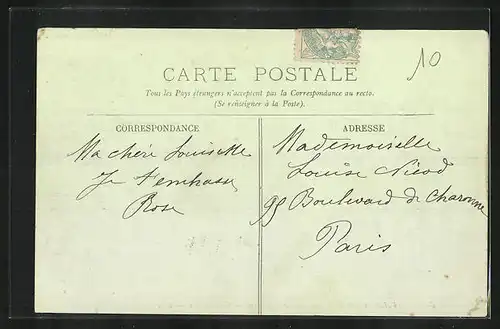 10
CARTE POSTALE
Tous les Pays étrangers n'acceptent pas la Correspondance au recto.
(Se renseigner à la Poste).
CORRESPONDANCE
Ma chère Louisette
Je t'embrasse
Rose
ADRESSE
Mademoiselle
Louise Nicod
99 Boulevard de Charonne
Paris